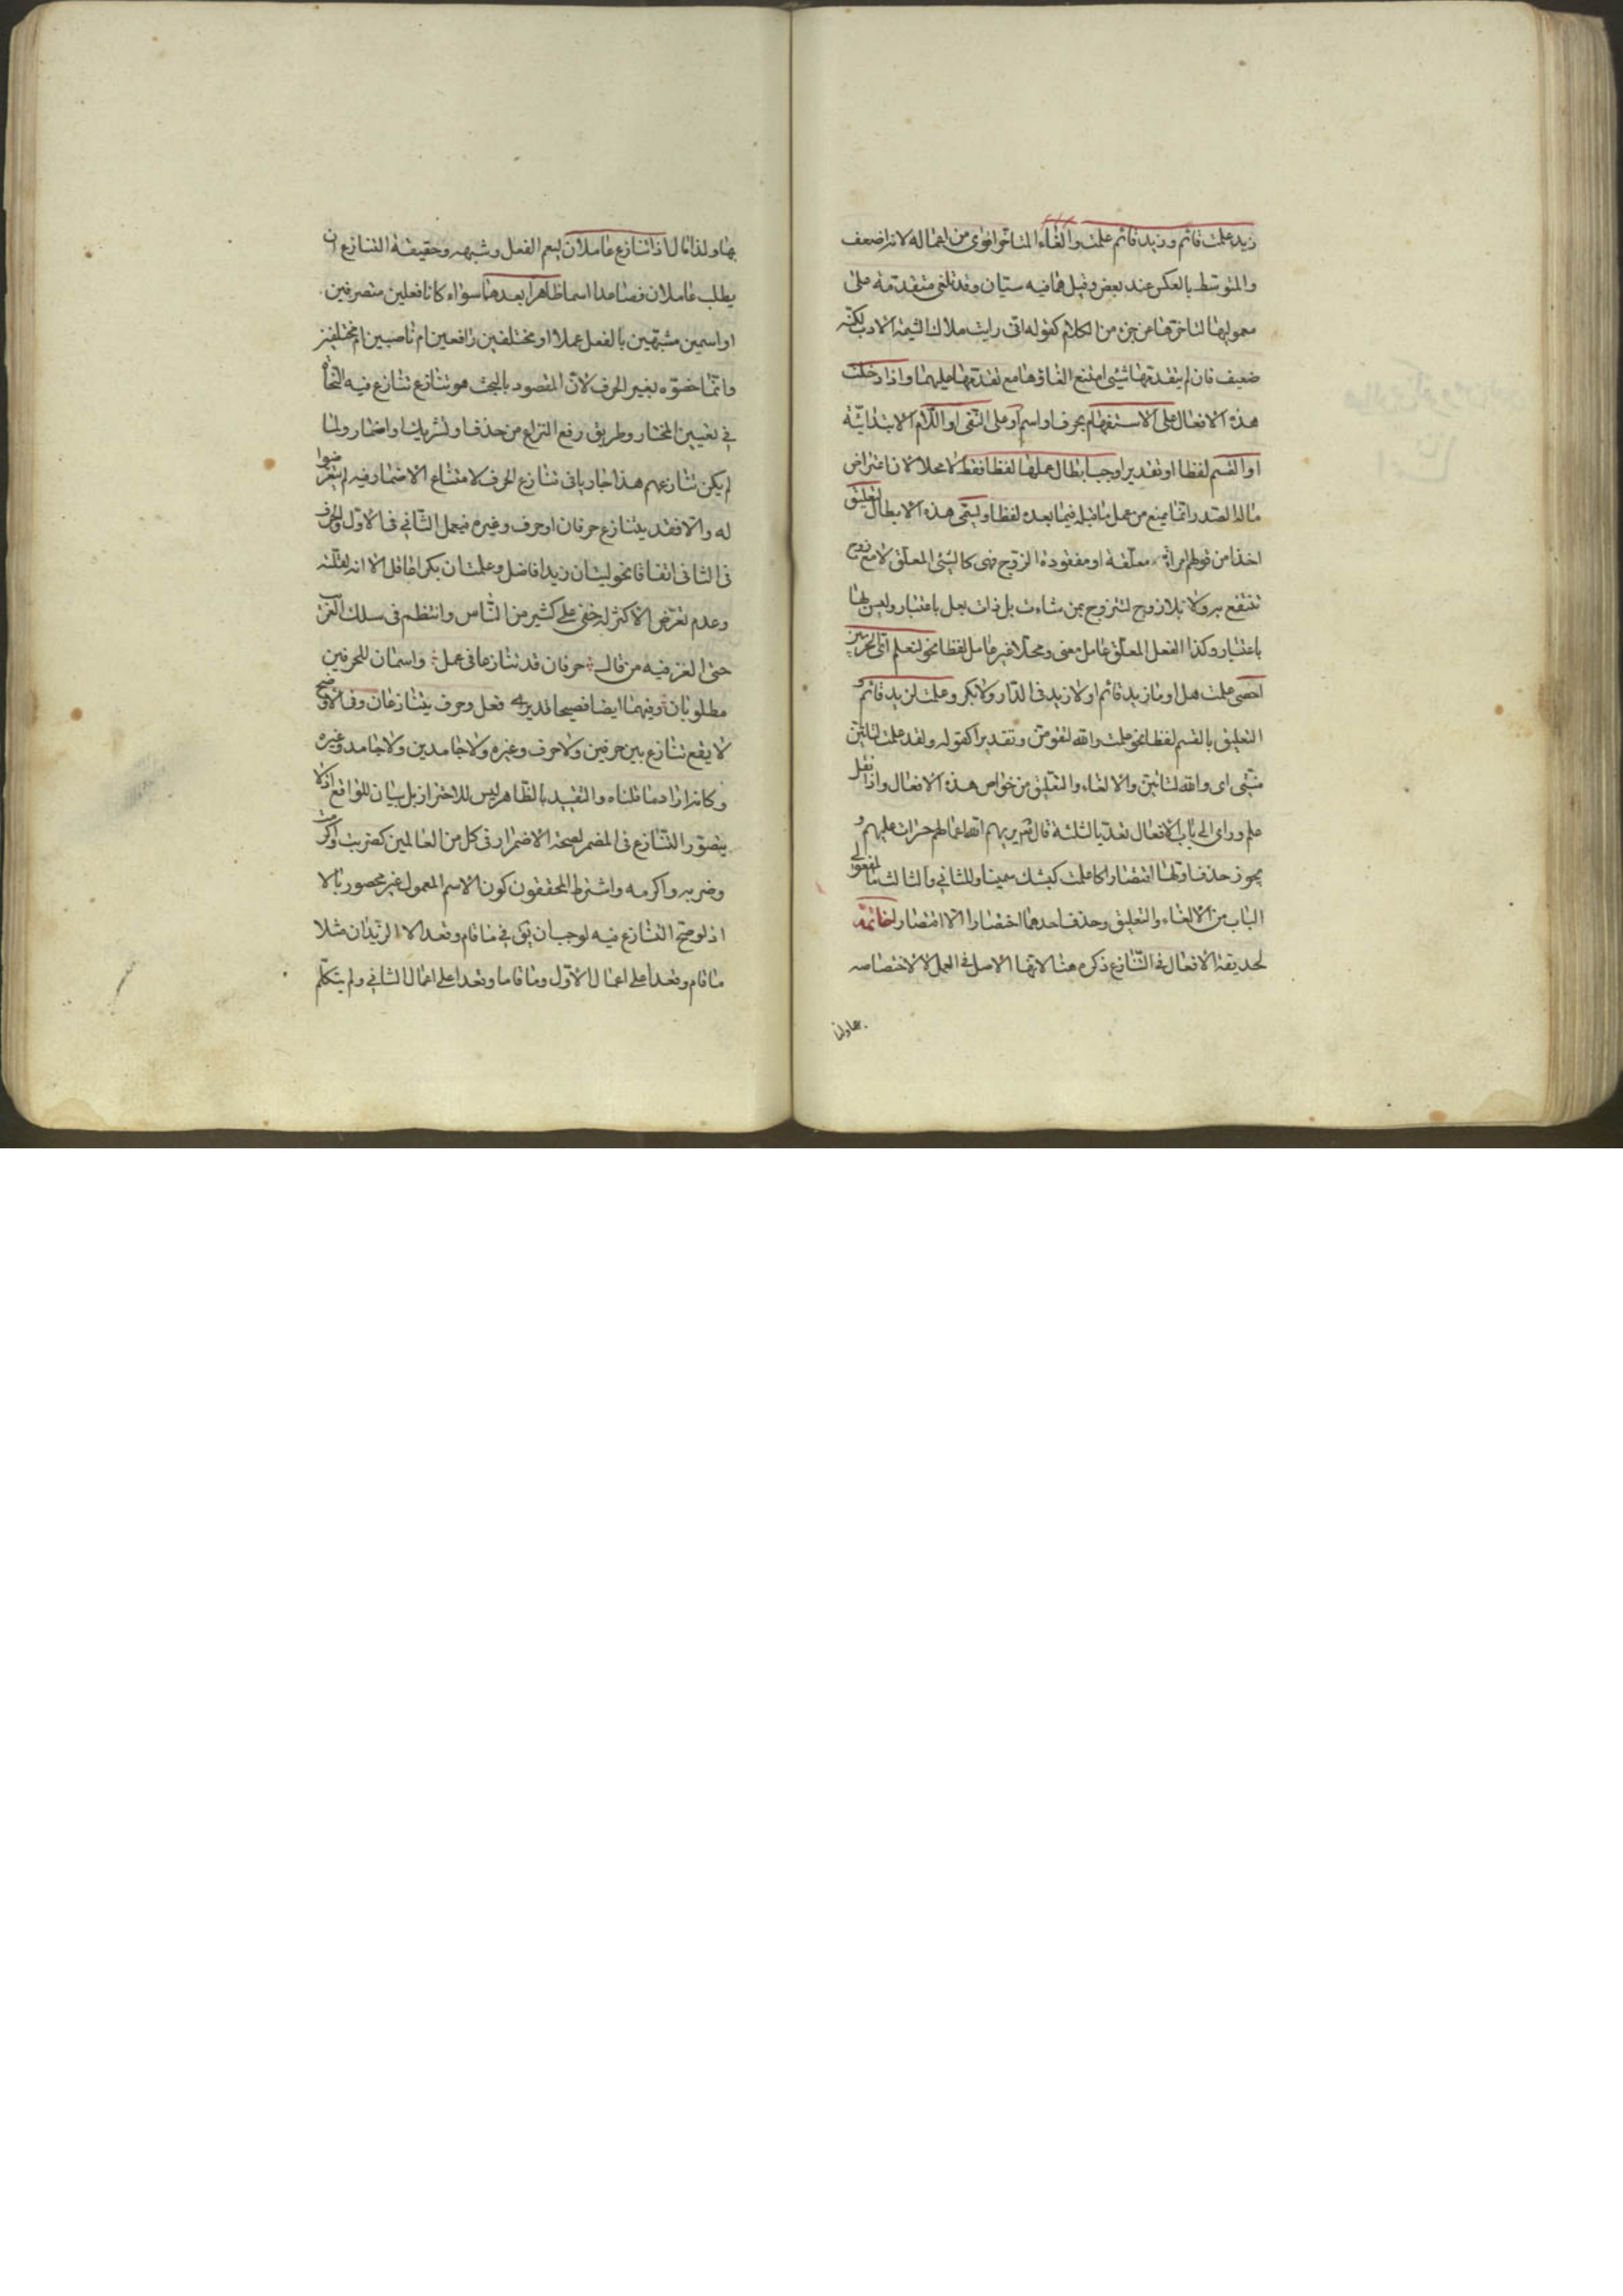 زيد علمت قائم وزيد قائم علمت والغاء المتاخر اقوى من اعماله لانه اضعف
والمتوسّط بالعكس عند بعض وقيل هما فيه سيّان وقد تلغى متقدمة على
معموليها لتاخرها عن جزء من الكلام كقوله انى رايت ملاك الشيمة الادب لكنّه
ضعيف فان لم يتقدمها شيئ امتنع الغاؤها مع تقدمها عليهما واذا دخلت
هذه الافعال على الاستفهام بحرف او اسم او على النّفى او اللّام الابتدائيّة
او القسم لفظا او تقديرا وجب ابطال عملها لفظا فقط لا محلا لان اعتراض
ماله الصّدر انّما يمنع من عمل ماقبله فيما بعده لفظا ويسمّى هذه الابطال التعليق
اخذا من قولهم امراة معلّقة اى مفقودة الزوج فهى كالشّئ المعلّق لا مع زوج
تنتفع به ولا بلا زوج لتتزوج بمن شاءت بل ذات بعل باعتبار وليس لها
باعتبار وكذا الفعل المعلّق عامل معنى ومحلّا غير عامل لفظا نحو لنعلم اىّ الحزبين
احصى علمت هل او ما زيد قائم او لا زيد فى الدّار ولا بكر وعلمت لزيد قائم و
التعليق بالقسم لفظا نحو علمت والله لتقومنّ وتقديرا كقوله ولقد علمت لتاتينّ
منيّتى اى والله لتاتينّ والالغاء والتّعليق من خواص هذه الافعال واذا نقل
علم وراى الى باب الافعال تعدّيا لثلثة قال تعم يريهم الله اعمالهم حسرات عليهم و
يجوز حذف اولها اقتصارا كاعلمت كبشك سمينا وللثانى والثالث ما لمفعولى
الباب من الالغاء والتعليق وحذف احدهما اختصارا لا اقتصارا خاتمة
لحديقة الافعال فى التّنازع ذكره هنا لانها الاصل فى العمل لا لاختصاصه
بها ولذا
بها ولذا قال اذا تنازع عاملان ليعم الفعل وشبهه وحقيقة التنازع ان
يطلب عاملان فصاعدا اسما ظاهرا بعدهما سواء كانا فعلين متصرفين
او اسمين مشبّهين بالفعل عملا او مختلفين رافعين ام ناصبين ام مختلفين
وانّما خصّوه بغير الحرف لانّ المقصود بالبحث هو تنازع تنازع فيه النحاة
فى تعيين المختار وطريق رفع النزاع من حذف او تشريك او اضمار ولما
لم يكن تنازعهم هذا جاريا فى تنازع الحرف لامتناع الاضمار فيه لم يتعرضوا
له والّا فقد يتنازع حرفان او حرف وغيره فيعمل الثّانى فى الاوّل والحرف
فى الثانى اتفاقا نحو ليت ان زيدا فاضل وعلمت ان بكرا عاقل الا انه لقلّته
وعدم تعرّض الاكثر له خفى على كثير من النّاس وانتظم فى سلك الغرائب
حتى الغز فيه من قال حرفان قد تنازعا فى عمل واسمان للحرفين
مطلوبان وفيهما ايضا فصيحا قد يرى فعل وحرف يتنازعان وفى الاوضح
لا يقع تنازع بين حرفين ولا حرف وغيره ولا جامدين ولا جامد وغيره
وكانه اراد ما قلناه والتقييد بالظّاهر ليس للاحتراز بل بيان للواقع اذ لا
يتصوّر التّنازع فى المضمر لصحة الاضمار فى كل من العاملين كضربت واكرمت
وضربه واكرمه واشترط المحققون كون الاسم المعمول غير محصور بالا
اذ لو صحّ التنازع فيه لوجب ان يق فى ما قام وقعد الا الزيدان مثلا
ما قام وقعدا على اعمال الاوّل وما قاما وقعدا على اعمال الثانى ولم يتكلّم